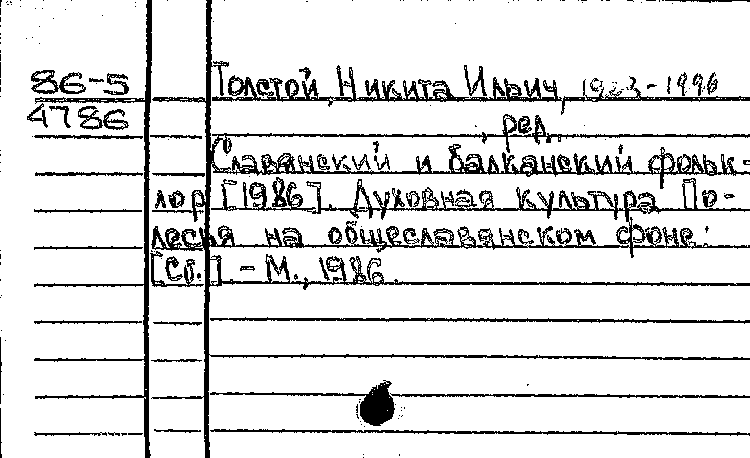 86-5
4786
Толстой, Никита Ильич, 1923-1996
, ред.
Славянский и балканский фольк-
лор [1986]. Духовная культура По-
лесья на общеславянском фоне:
[Сб.]. - М., 1986.